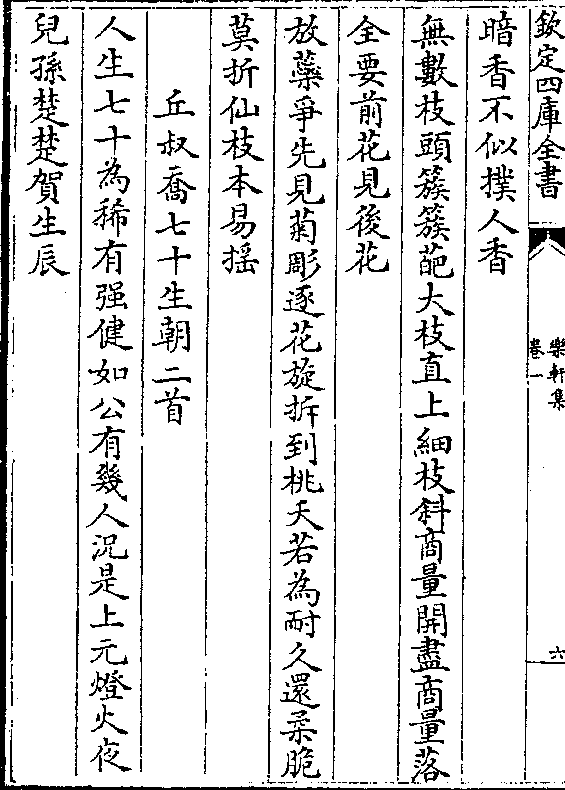 欽定四庫全書
樂軒集
卷一
六
暗香不似撲人香
無數枝頭簇簇葩大枝直上細枝斜商量開盡商量落
全要前花見後花
放蘂爭先見菊彫逐花旋拆到桃夭若為耐久還柔脆
莫折仙枝本易搖
丘叔喬七十生朝二首
人生七十為稀有强健如公有幾人況是上元燈火夜
兒孫楚楚賀生辰